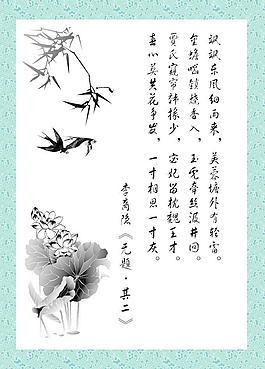 飒飒东风细雨来，芙蓉塘外有轻雷。
金蟾啮锁烧香入，玉虎牵丝汲井回。
贾氏窥帘韩掾少，宓妃留枕魏王才。
春心莫共花争发，一寸相思一寸灰。
李商隐《无题·其二》